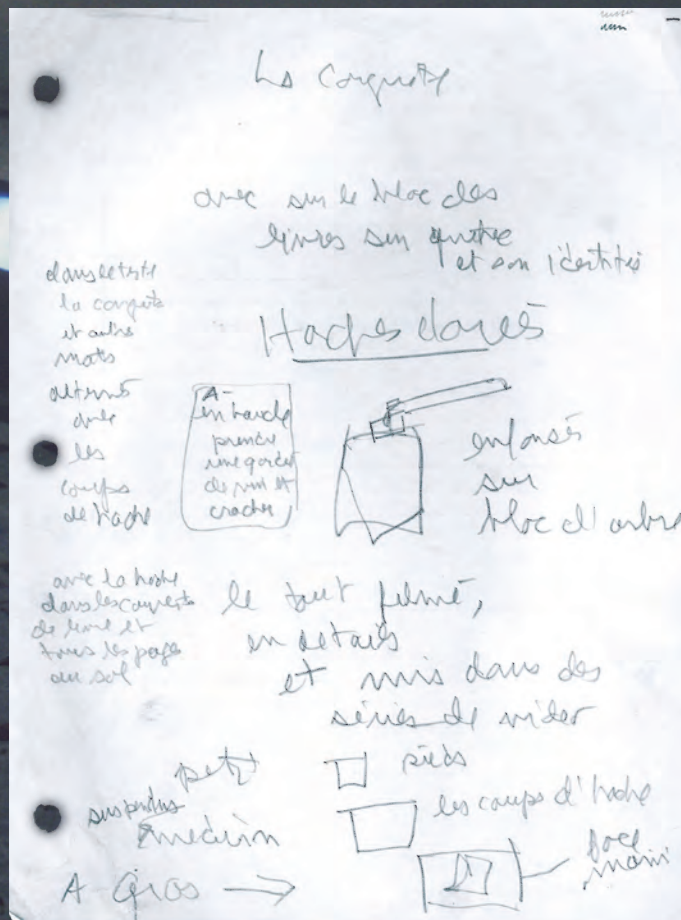 La conquête
avec sur le bloc des
livres sur
et son identités
Haches dorés
dans le texte
la conquête
et autre
mots
alterné
avec
les
coups
de hache
A-
prendre
une gorgée
et
cracher
enfonsés
sur
bloc d'arbre
avec la hache
dans les
de livre et
tous les pages
au sol
le tout filmé,
en détails
et mis dans des
séries de
petit
pieds
suspendus
médium
les coups d'hache
A Gros →
face
main